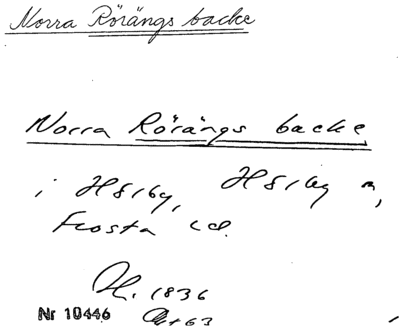 Norra Rörängs backe
Norra Rörängs backe
i Hörby, Hörby sn,
Frosta hd.
1836
Nr 10446